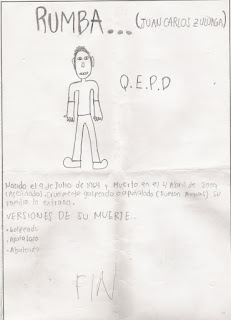 RUMBA... (JUAN CARLOS ZULUAGA)
Q.E.P.D
Nacido el 9 de Julio de 1984 y Muerto en el 4 Abril de 2009
(Asesinado). Cruelmente golpeado o apuñalado (Rumban). Su
familia lo extraña.
VERSIONES DE SU MUERTE..
• Golpeado
• Apuñalado
• Abaleado
FIN